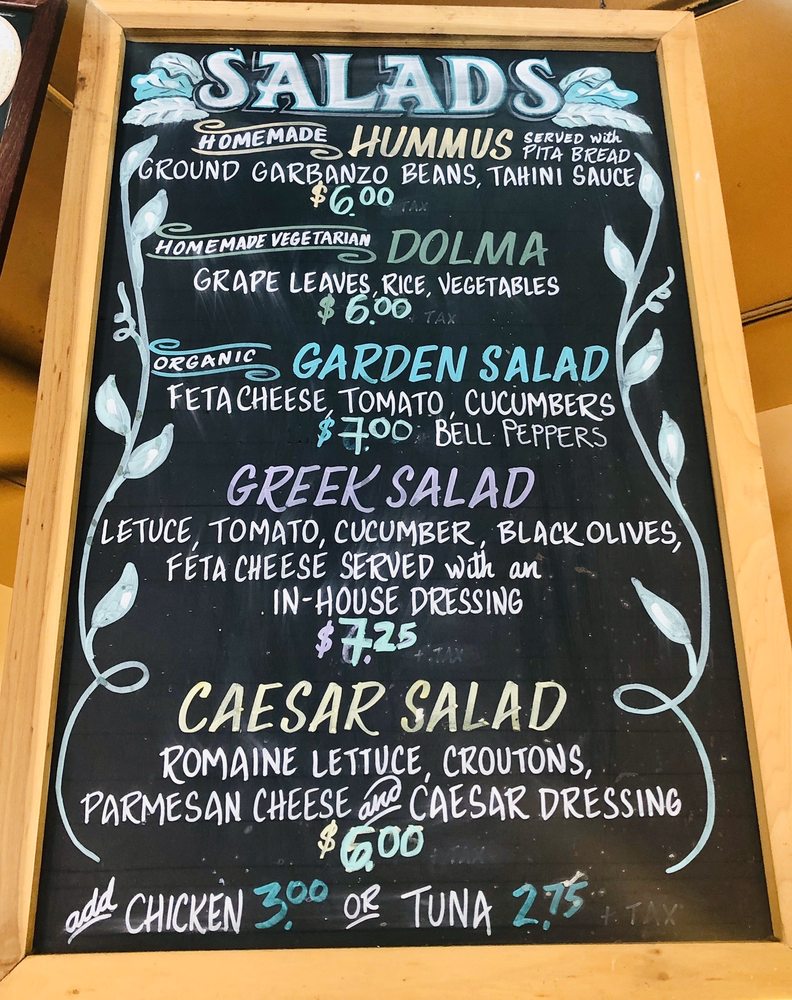 SALADS
HOMEMADE HUMMUS SERVED with PITA BREAD
GROUND GARBANZO BEANS, TAHINI SAUCE
$6.00 TAX
HOMEMADE VEGETARIAN DOLMA
GRAPE LEAVES, RICE, VEGETABLES
$6.00 + TAX
ORGANIC GARDEN SALAD
FETA CHEESE, TOMATO, CUCUMBERS
$7.00 BELL PEPPERS
GREEK SALAD
LETUCE, TOMATO, CUCUMBER, BLACK OLIVES,
FETA CHEESE SERVED with an
IN-HOUSE DRESSING
$7.25 + TAX
CAESAR SALAD
ROMAINE LETTUCE, CROUTONS,
PARMESAN CHEESE and CAESAR DRESSING
$6.00
add CHICKEN 3.00 OR TUNA 2.75 + TAX